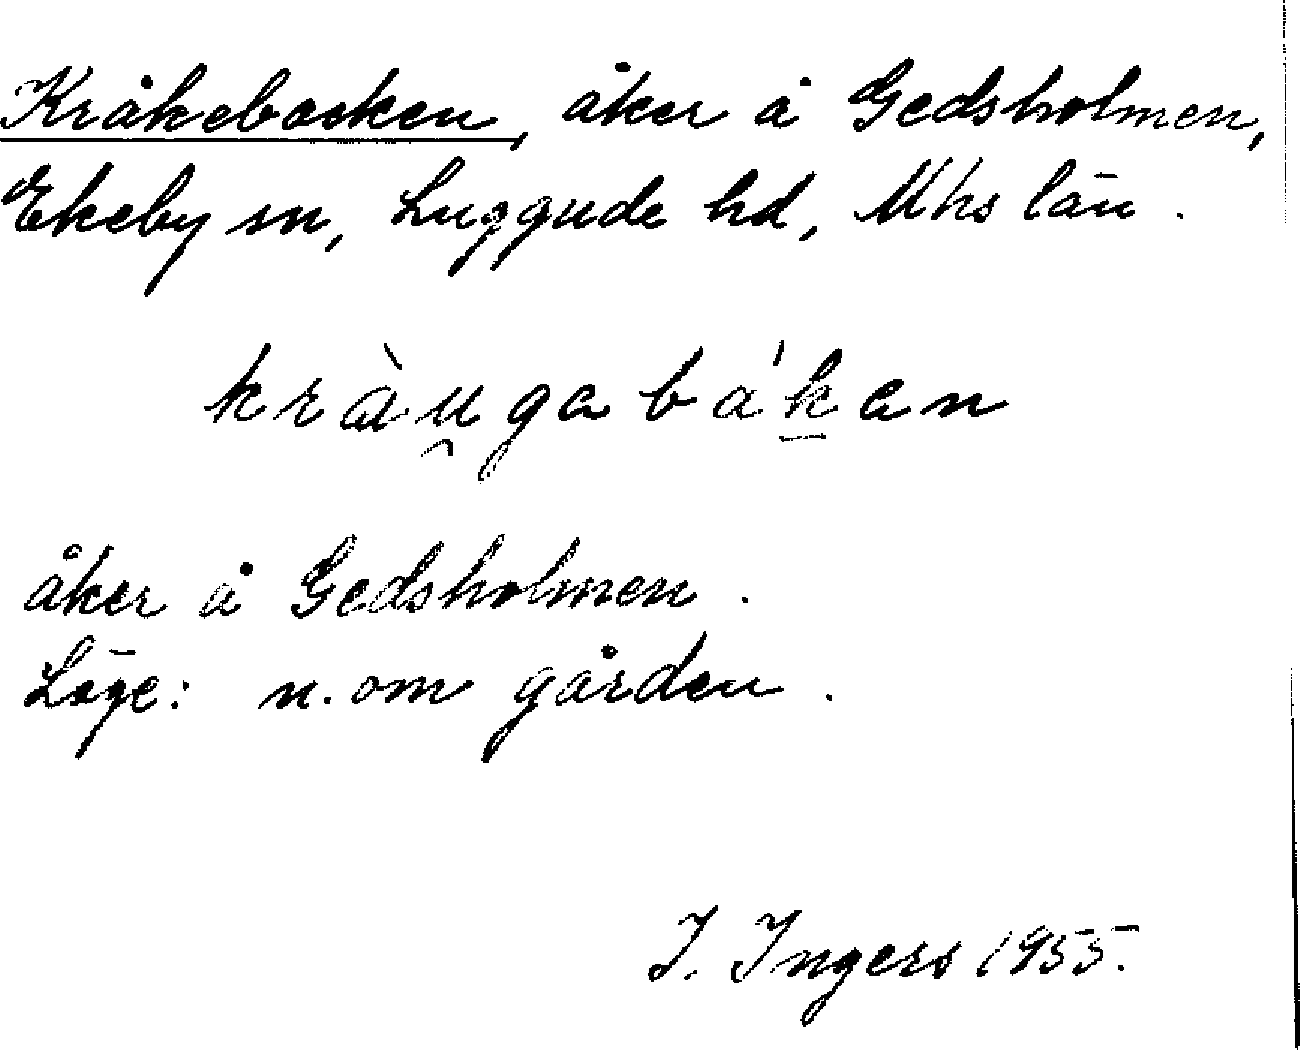 Kråkebacken, åker å Gedsholmen,
Ekeby sn, Luggude hd, Mhs län.
kràu̯gabák̲an
åker å Gedsholmen.
Läge: n. om gården.
I. Ingers 1955.